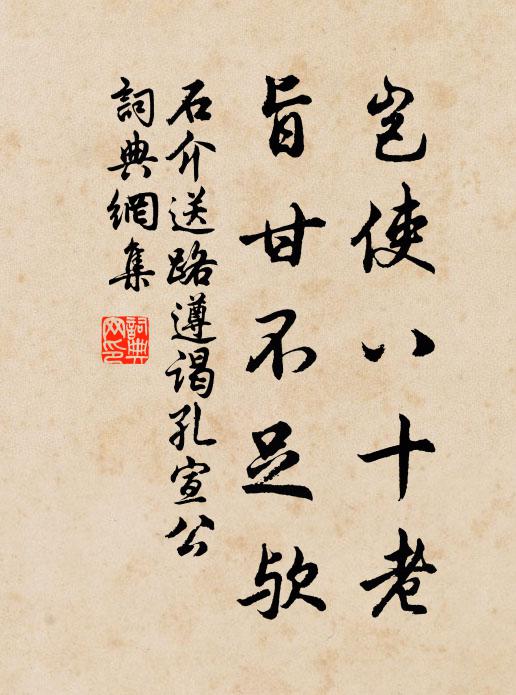 岂使八十老
旨甘不足欤
石介送路遵谒孔宣公
詞典網集
詞典网印